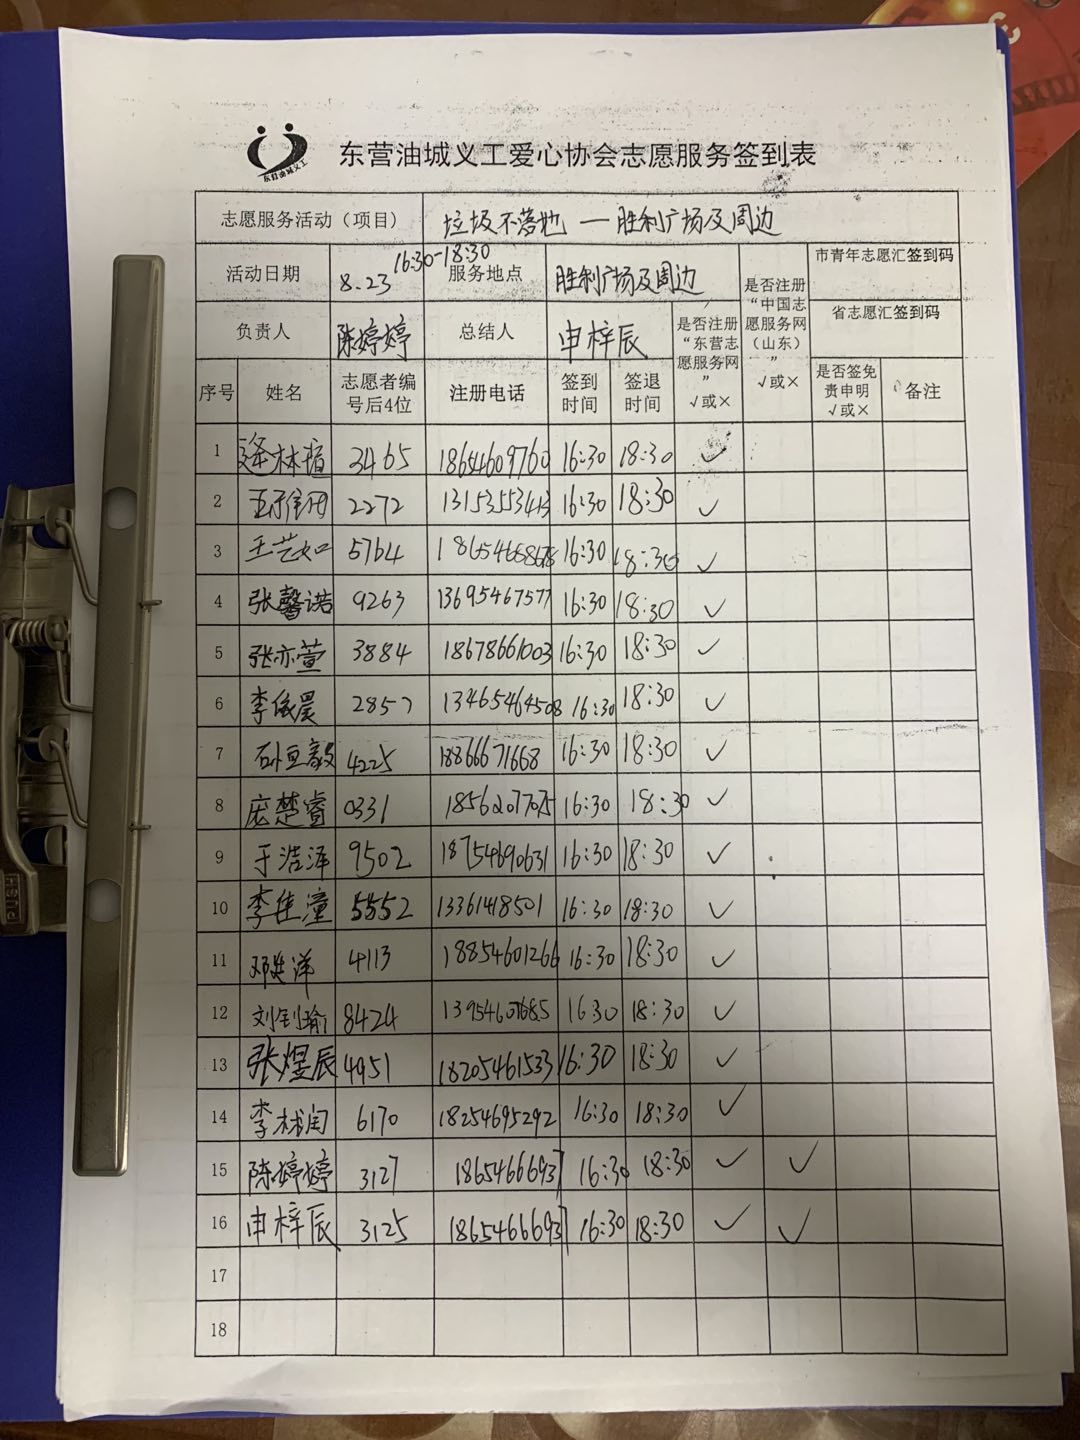 东营油城义工
东营油城义工爱心协会志愿服务签到表
志愿服务活动（项目） 垃圾不落地 — 胜利广场及周边
活动日期 8.23 16:30-18:30 服务地点 胜利广场及周边 是否注册“东营志愿服务网” √或× 是否注册“中国志愿服务网（山东）” √或× 市青年志愿汇签到码
负责人 陈婷婷 总结人 申梓辰 省志愿汇签到码
序号 姓名 志愿者编号后4位 注册电话 签到时间 签退时间 是否签免责申明 √或× 备注
1 3465 18654609760 16:30 18:30 ✓
2 2272 13153553413 16:30 18:30 ✓
3 王艺如 5764 16:30 18:30 ✓
4 张馨诺 9263 13695467577 16:30 18:30 ✓
5 张亦萱 3884 18678661003 16:30 18:30 ✓
6 李依晨 2857 13465464508 16:30 18:30 ✓
7 孙恒毅 4225 18866671668 16:30 18:30 ✓
8 庞楚睿 0331 18562077075 16:30 18:30 ✓
9 于浩泽 9502 18754690631 16:30 18:30 ✓
10 李佳潼 5552 13361418501 16:30 18:30 ✓
11 4113 18854601266 16:30 18:30 ✓
12 刘钊瑜 8424 13954607685 16:30 18:30 ✓
13 张煜辰 4951 18205461533 16:30 18:30 ✓
14 李林闰 6170 18254695292 16:30 18:30 ✓
15 陈婷婷 3127 18654666937 16:30 18:30 ✓ ✓
16 申梓辰 3125 18654666937 16:30 18:30 ✓ ✓
17
18
PUSH